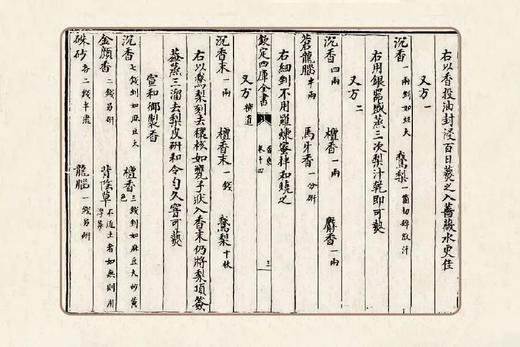 右以香投油封浸百日爇之入薔薇水更佳
又方一
沉香一兩剉如炷大 鵞梨一箇切碎取汁
右用銀器盛蒸三次梨汁乾即可爇
又方二
沉香四兩 檀香一兩 麝香一兩
蒼龍腦半兩 馬牙香一分研
右細剉不用羅煉蜜拌和燒之
欽定四庫全書 香乘 卷十四
又方補遺
沉香末一兩 檀香末一錢 鵞梨十枚
右以鵞梨刻去穰核如甕子狀入香末仍將梨頂簽
蓋蒸三溜去梨皮研和令勻久窨可爇
宣和御製香
沉香七錢剉如麻豆大 檀香三錢剉如麻豆大炒黄色
金顏香二錢另研 背陰草不近土者如無則用浮萍
硃砂各二錢半飛 龍腦一錢另研